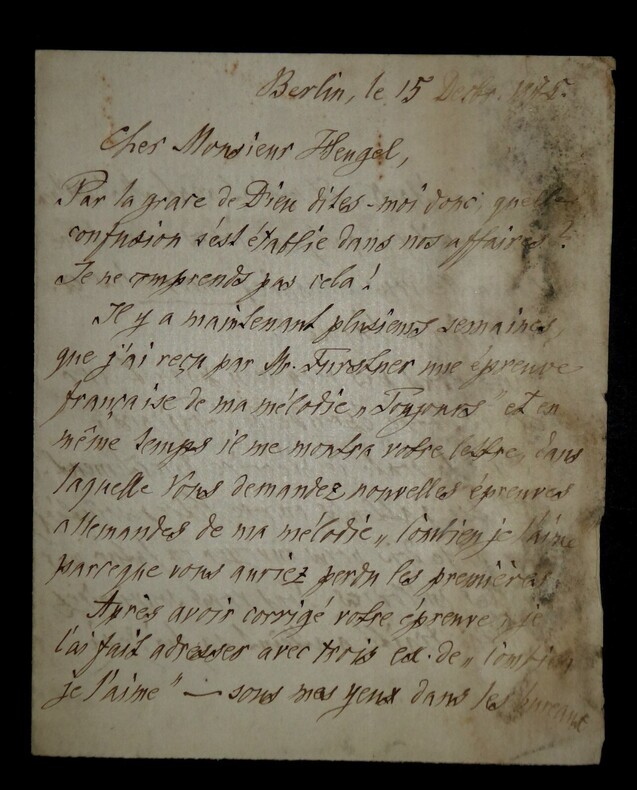 Berlin, le 15 Decbr.
Cher Monsieur Hengel,
Par la grace de Dieu dites-moi donc quelle
confusion s'est établie dans nos affaires!
Je ne comprends pas cela!
Il y a maintenant plusieurs semaines
que j'ai reçu par Mr. Furstner une épreuve
française de ma mélodie „Toujours" et en
même temps il me montra votre lettre, dans
laquelle Vous demandez nouvelles épreuves
allemandes de ma mélodie „Combien je l'aime
parceque vous auriez perdu les premières.
Après avoir corrigé votre épreuve, je
l'ai fait adresser avec trois ex. de „Combien
je l'aime" — sous mes yeux dans les bureaux